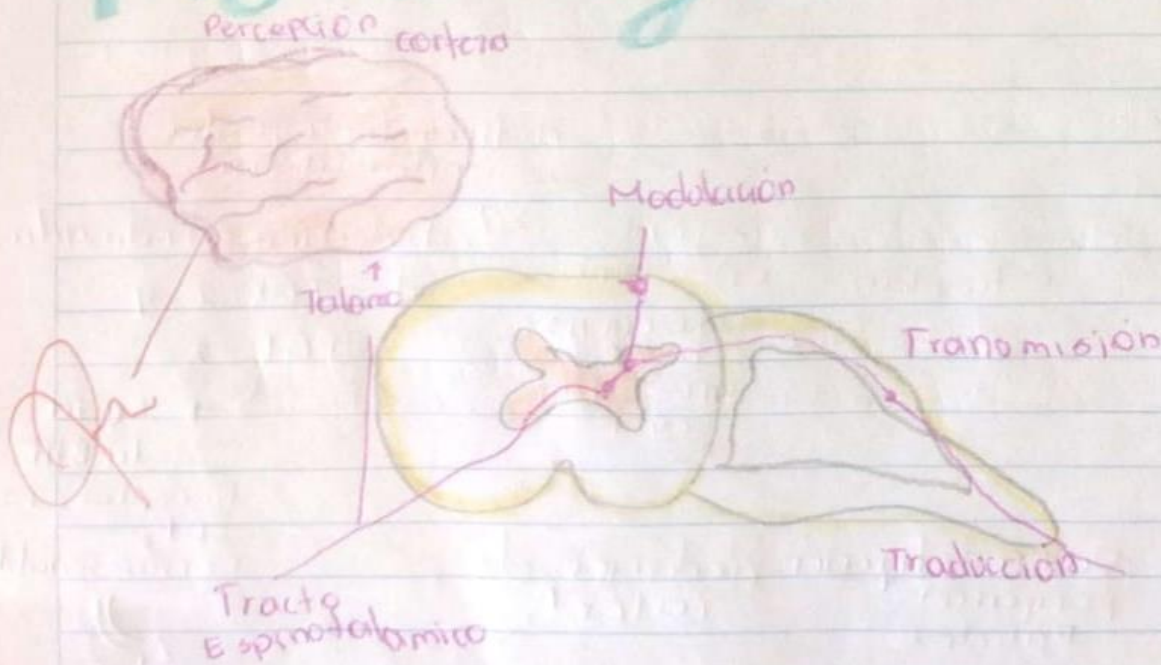 Percepción corteza
Modulación
Talamo
Transmisión
Traducción
Tracto
Espinotalamico